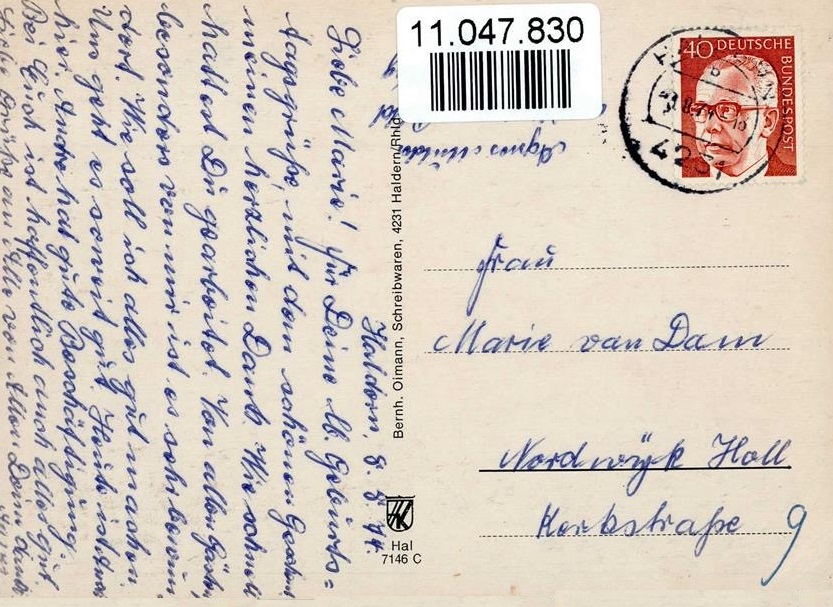 11.047.830
40 DEUTSCHE
BUNDESPOST
4231
Haldern, 8. 8. 74.
Liebe Marie! Für Deine lb. Geburts=
tagsgrüße, mit dem schönen
meinen herzlichen Dank. Wie schnell
hattest Du gearbeitet. Von allen
besonders von mir ist es sehr
dort. Wie soll ich alles gut machen.
Uns geht es soweit gut. Heute ist
hier. hat gute Beschäftigung.
Bei Euch ist hoffentlich auch alles gut.
Liebe Grüße an Alle von Allen Deine
Agnes
Bernh. Oimann, Schreibwaren, 4231 Haldern/Rhld.
Hal
7146 C
Frau
Marie van Dam
Nordwÿk Holl
Kerkstraße 9